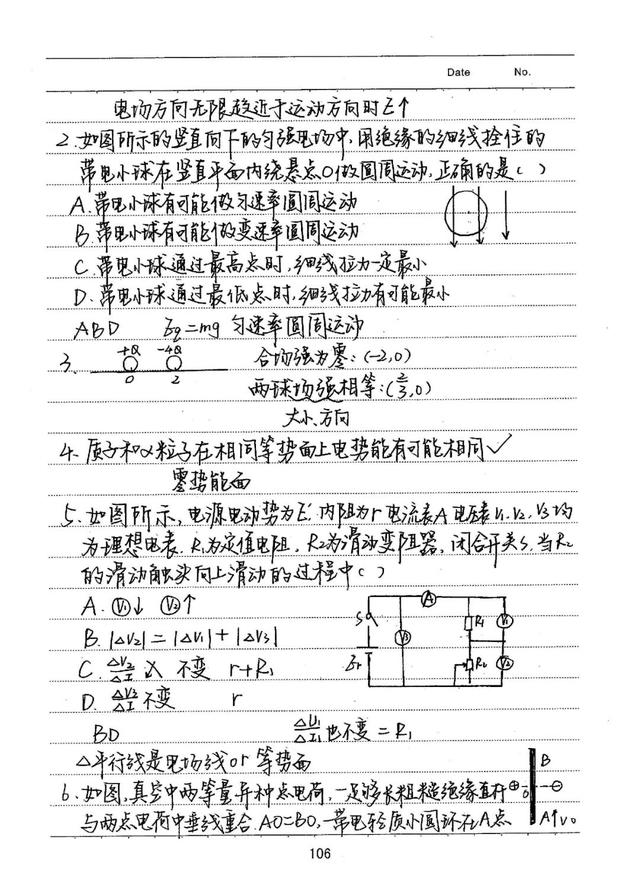 Date No.
电场方向无限趋近于运动方向时E↑
2.如图所示的竖直向下的匀强电场中,用绝缘的细线拴住的
带电小球在竖直平面内绕悬点O做圆周运动,正确的是( )
A.带电小球有可能做匀速率圆周运动
B.带电小球有可能做变速率圆周运动
C.带电小球通过最高点时,细线拉力一定最小
D.带电小球通过最低点时,细线拉力有可能最小
ABD Eq=mg 匀速率圆周运动
3. +Q -4Q 合场强为零:(-2,0)
0 2 两球场强相等:(2/3,0)
大小、方向
4.质子和α粒子在相同等势面上电势能有可能相同✓
零势能面
5.如图所示,电源电动势为E,内阻为r 电流表A 电压表V₁.V₂.V₃均
为理想电表.R₁为定值电阻,R₂为滑动变阻器,闭合开关S,当R₂
的滑动触头向上滑动的过程中( )
A. V₁↓ V₂↑
B. |ΔV₂|=|ΔV₁|+|ΔV₃|
C. ΔV₂/ΔI 不变 r+R₁
D. ΔV₃/ΔI 不变 r
S A R₁ V₁
V₃
Er R₂ V₂
BD ΔU₁/ΔI₁ 也不变=R₁
△平行线是电场线or等势面
6.如图,真空中两等量异种点电荷,一足够长粗糙绝缘直杆
与两点电荷中垂线重合.AO=BO,一带电轻质小圆环在A点
B
⊕ O ⊖
A↑V₀
106